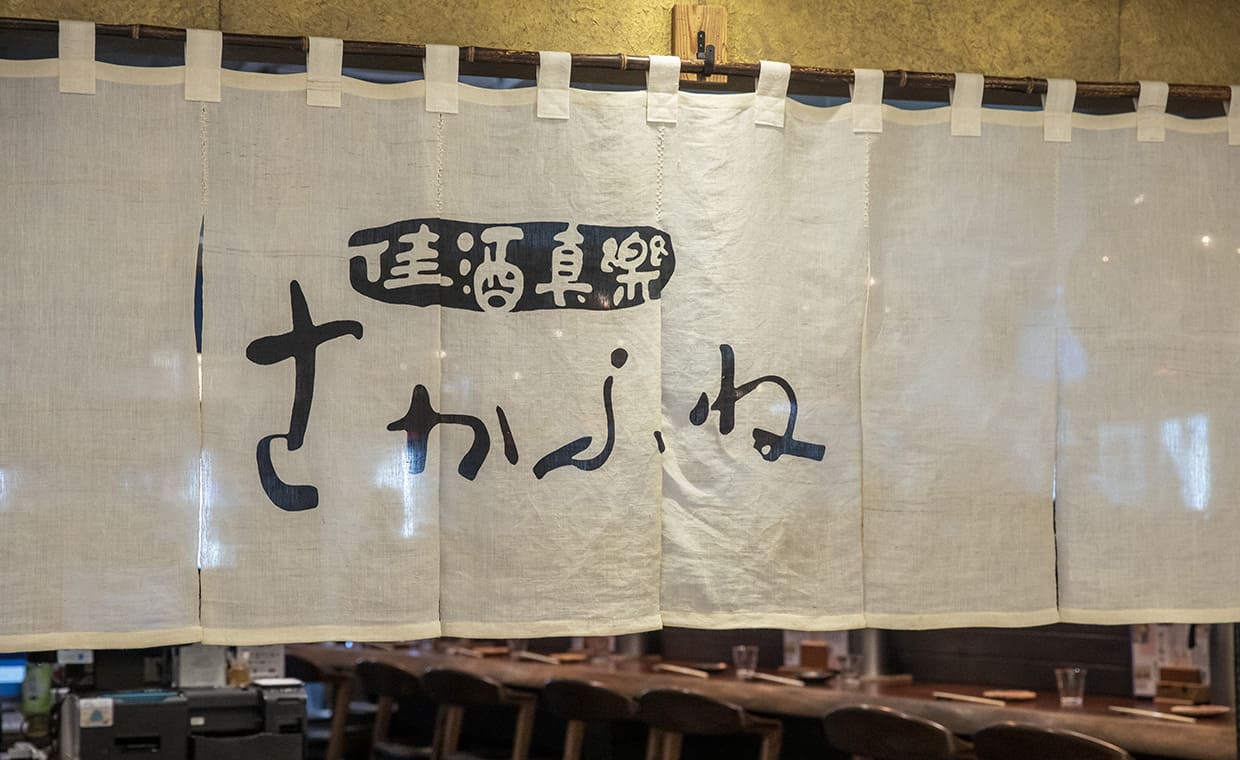 佳酒真樂
さかふね